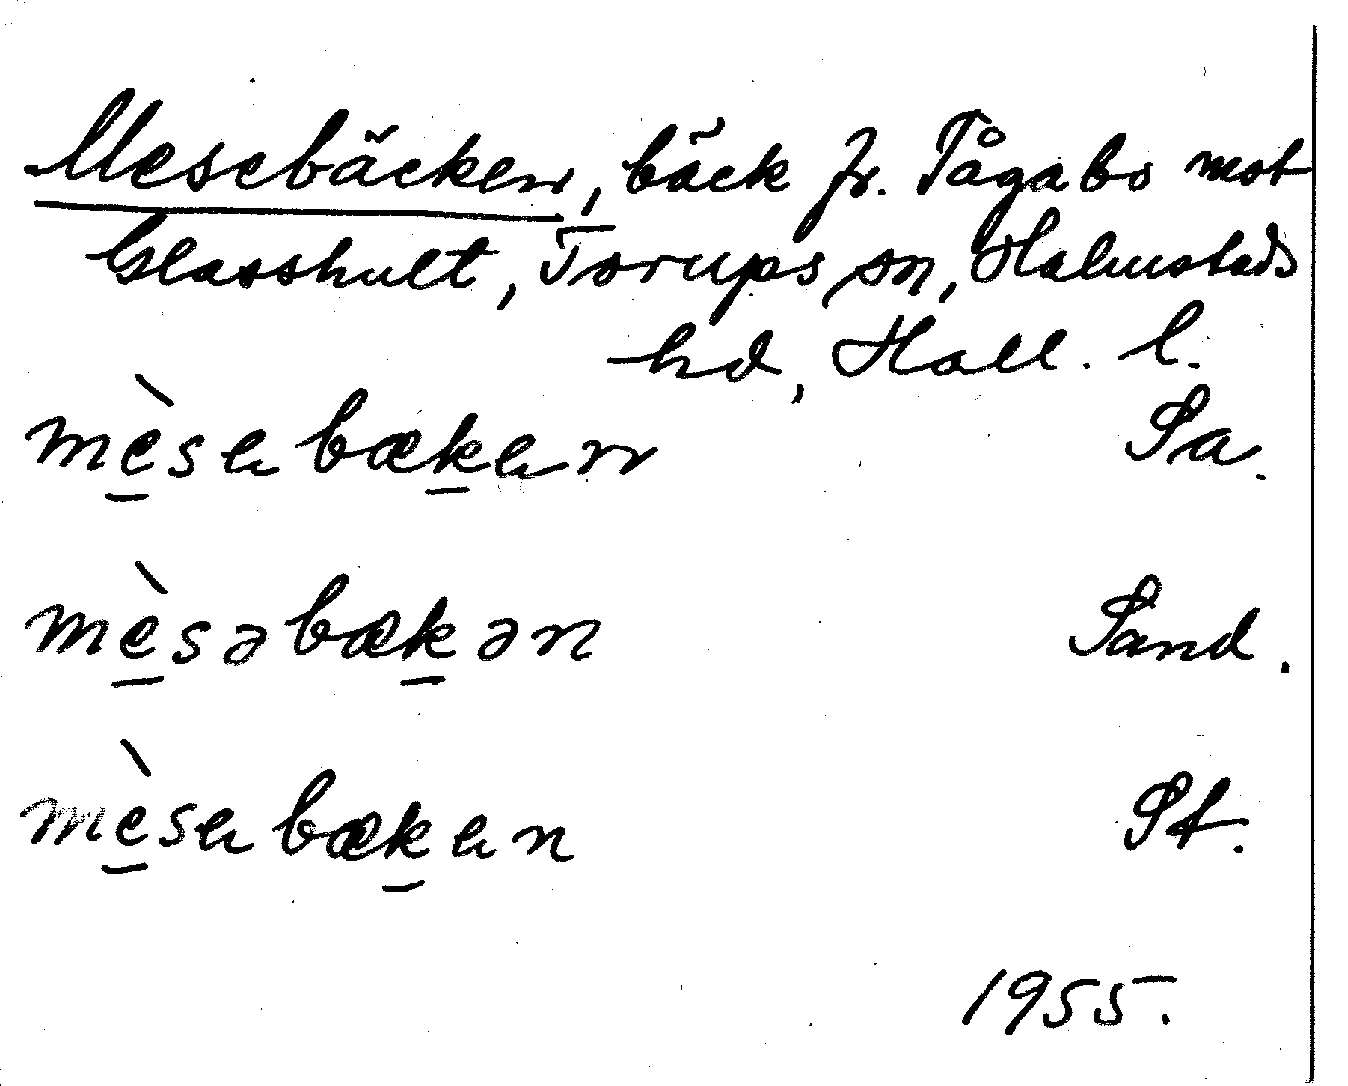 Mesebäcken, bäck fr. Tågabo mot
Glasshult, Torups sn, Halmstads
hd, Hall. l.
mèsebæken Sa.
mèsəbækən Sand.
mèsebæken St.
1955.